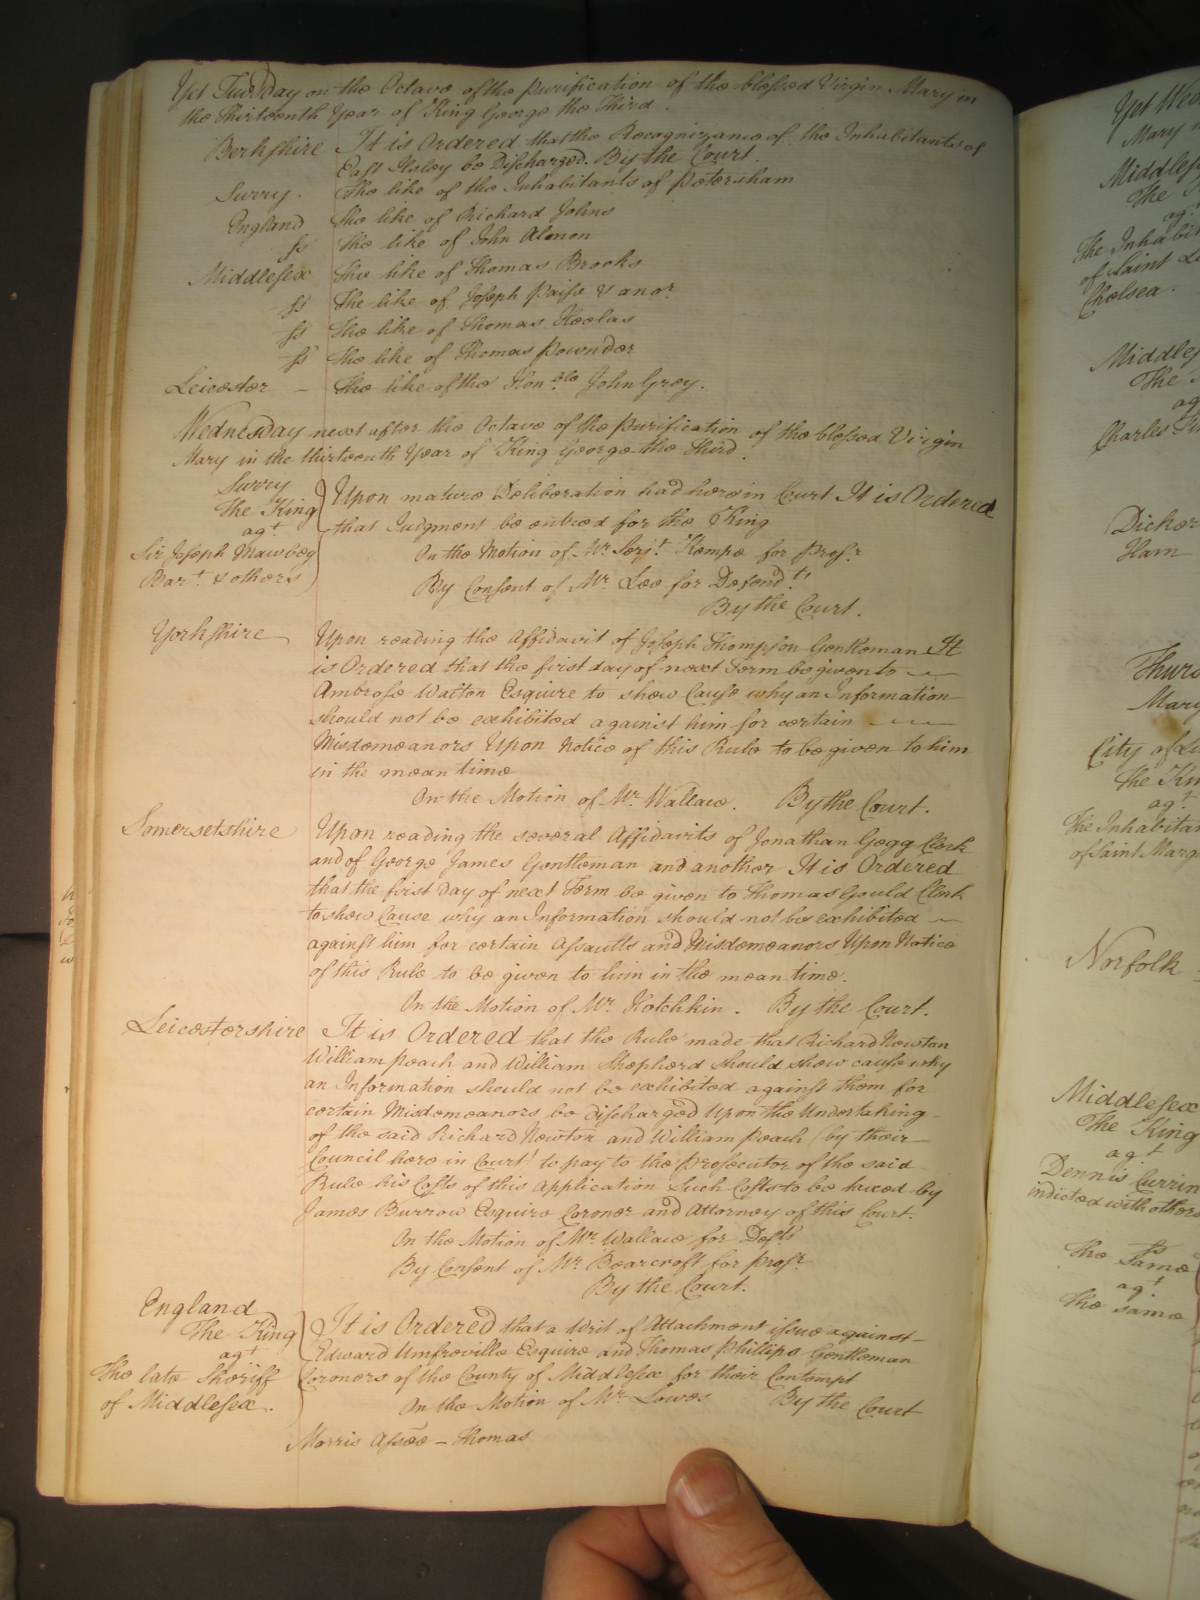 Yet Tuesday on the Octave of the Purification of the blessed Virgin Mary in
the Thirteenth Year of King George the Third.
Berkshire It is Ordered that the Recognizance of the Inhabitants of
East Ilsley be Discharged. By the Court.
Surry. The like of the Inhabitants of Petersham
England The like of Richard Johns
ss The like of John Almon
Middlesex The like of Thomas Brooks
ss The like of Joseph Paise & anor
ss The like of Thomas
ss The like of Thomas Pownder
Leicester – The like of the Honble John Grey.
Wednesday next after the Octave of the Purification of the blessed Virgin
Mary in the thirteenth Year of King George the Third.
Surry
The King
agt
Sir Joseph Mawbey
Bart & others
Upon mature Deliberation had here in Court It is Ordered
that Judgment be entred for the King
On the Motion of Mr Serjt Kempe for Prosr
By Consent of Mr Lee for Defendts
By the Court.
Yorkshire Upon reading the Affidavit of Joseph Thompson Gentleman It
is Ordered that the first day of next Term be given to
Ambrose Watson Esquire to shew Cause why an Information
should not be exhibited against him for certain
Misdemeanors Upon Notice of this Rule to be given to him
in the mean time
On the Motion of Mr Wallace. By the Court.
Somersetshire Upon reading the several Affidavits of Jonathan Gegg Clerk
and of George James Gentleman and another It is Ordered
that the first Day of next Term be given to Thomas Gould Clerk
to shew Cause why an Information should not be exhibited
against him for certain Assaults and Misdemeanors Upon Notice
of this Rule to be given to him in the mean time.
On the Motion of Mr Hotchkin. By the Court.
Leicestershire It is Ordered that the Rule made that Richard Newton
William Peach and William Shepherd should shew cause why
an Information should not be exhibited against them for
certain Misdemeanors be discharged Upon the Undertaking
of the said Richard Newton and William Peach (by their
Council here in Court) to pay to the Prosecutor of the said
Rule his Costs of this Application Such Costs to be taxed by
James Burrow Esquire Coroner and Attorney of this Court.
On the Motion of Mr Wallace for Defts
By Consent of Mr Bearcroft for Prosr
By the Court.
England
The King
agt
The late Sheriff
of Middlesex.
It is Ordered that a Writ of Attachment issue against
Edward Umfreville Esquire and Thomas Phillips Gentleman
Coroners of the County of Middlesex for their Contempt
On the Motion of Mr Lowes By the Court
Morris Assee – Thomas
Yet Wed
Mary
Middlesex
The
agt
The Inhabit
of Saint
Chelsea.
Middlesex
The
ag
Charles
Ham
Thurs
Mary
City of
The Kin
agt
The Inhabitan
of Saint Marg
Norfolk
Middlesex
The King
agt
Dennis Currin
indicted with others
ss
The Same
agt
The same